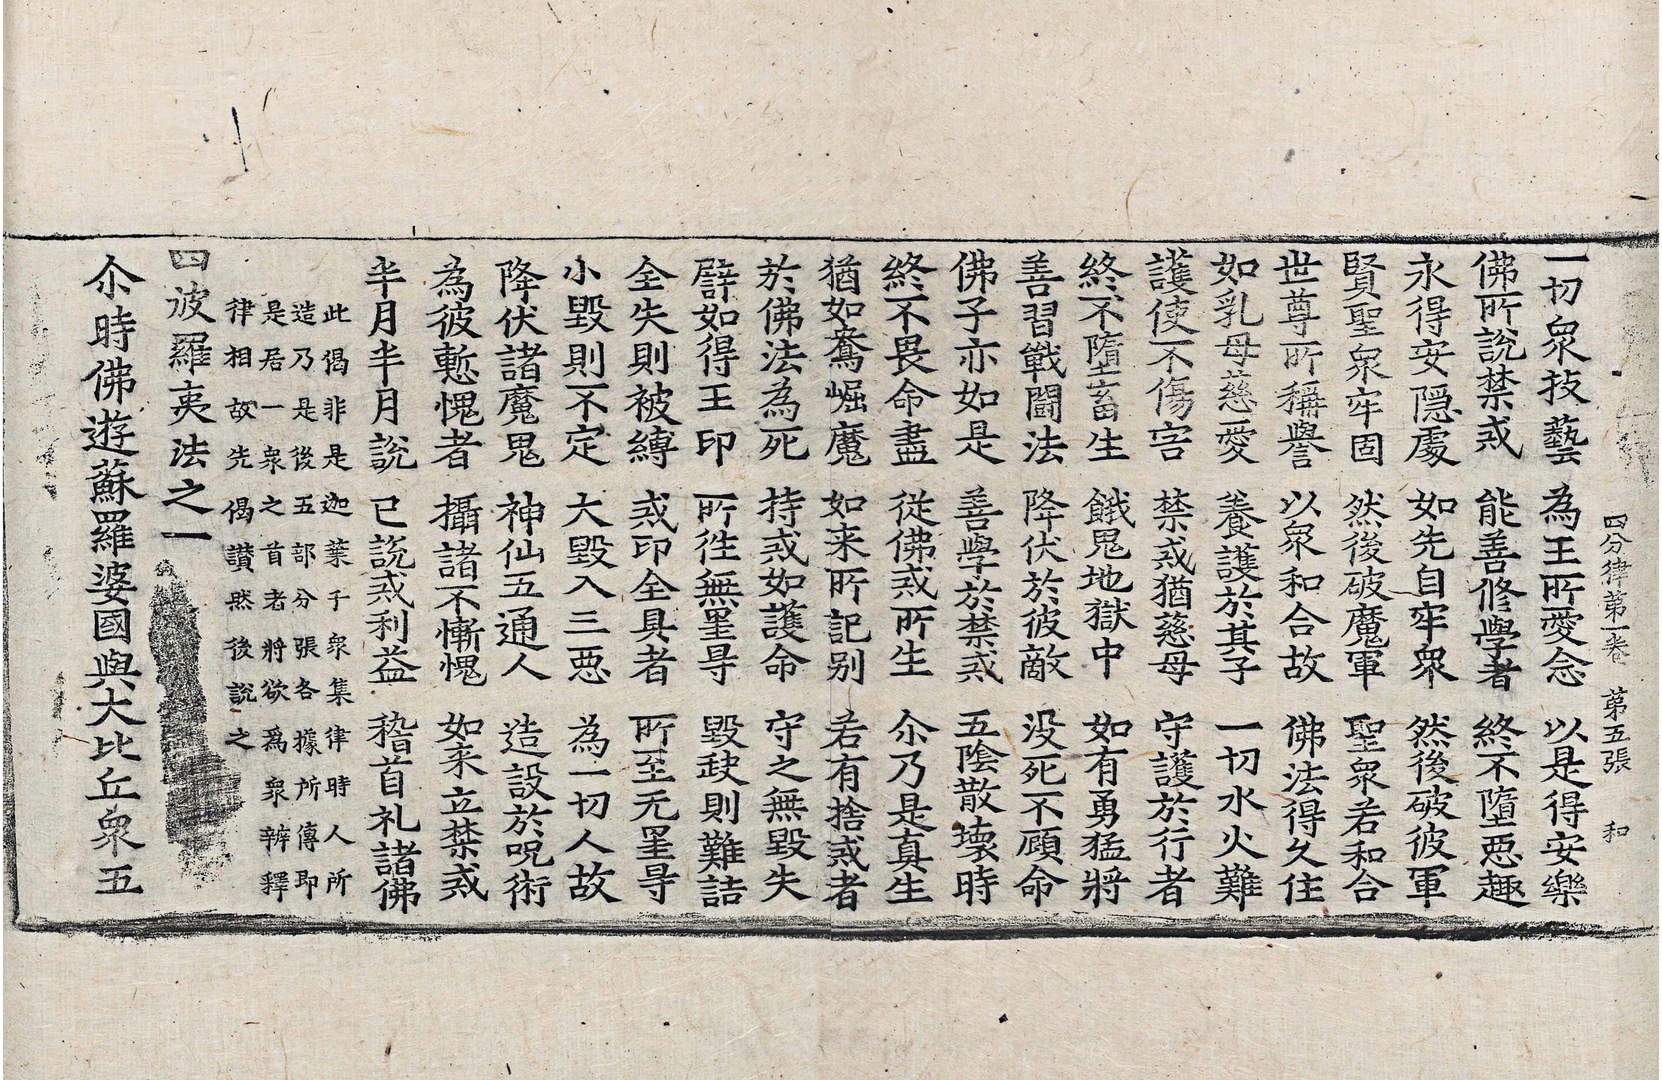 四分律第一卷 第五張 和
一切衆技藝 為王所愛念 以是得安樂
佛所說禁戒 能善修學者 終不墮惡趣
永得安隱處 如先自牢衆 然後破彼軍
賢聖衆牢固 然後破魔軍 聖衆若和合
世尊所稱譽 以衆和合故 佛法得久住
如乳母慈愛 養護於其子 一切水火難
護使不傷害 禁戒猶慈母 守護於行者
終不墮畜生 餓鬼地獄中 如有勇猛將
善習戰鬪法 降伏於彼敵 没死不顧命
佛子亦如是 善學於禁戒 五陰散壞時
終不畏命盡 從佛戒所生 尒乃是真生
猶如鴦崛魔 如来所記别 若有捨戒者
於佛法為死 持戒如護命 守之無毀失
譬如得王印 所往無罣㝵 毀䟽則難詰
全失則被縛 戒印全具者 所至无罣㝵
小毀則不定 大毀入三惡 為一切人故
降伏諸魔鬼 神仙五通人 造設於呪術
為彼慙愧者 攝諸不慚愧 如来立禁戒
半月半月說 已說戒利益 稽首礼諸佛
此偈非是迦葉千衆集律時人所
造乃是後五部分張各據所傳即
是居一衆之首者將欲爲衆辨釋
律相故先偈讃然後說之
四波羅夷法之一
尒時佛遊蘇羅婆國與大比丘衆五